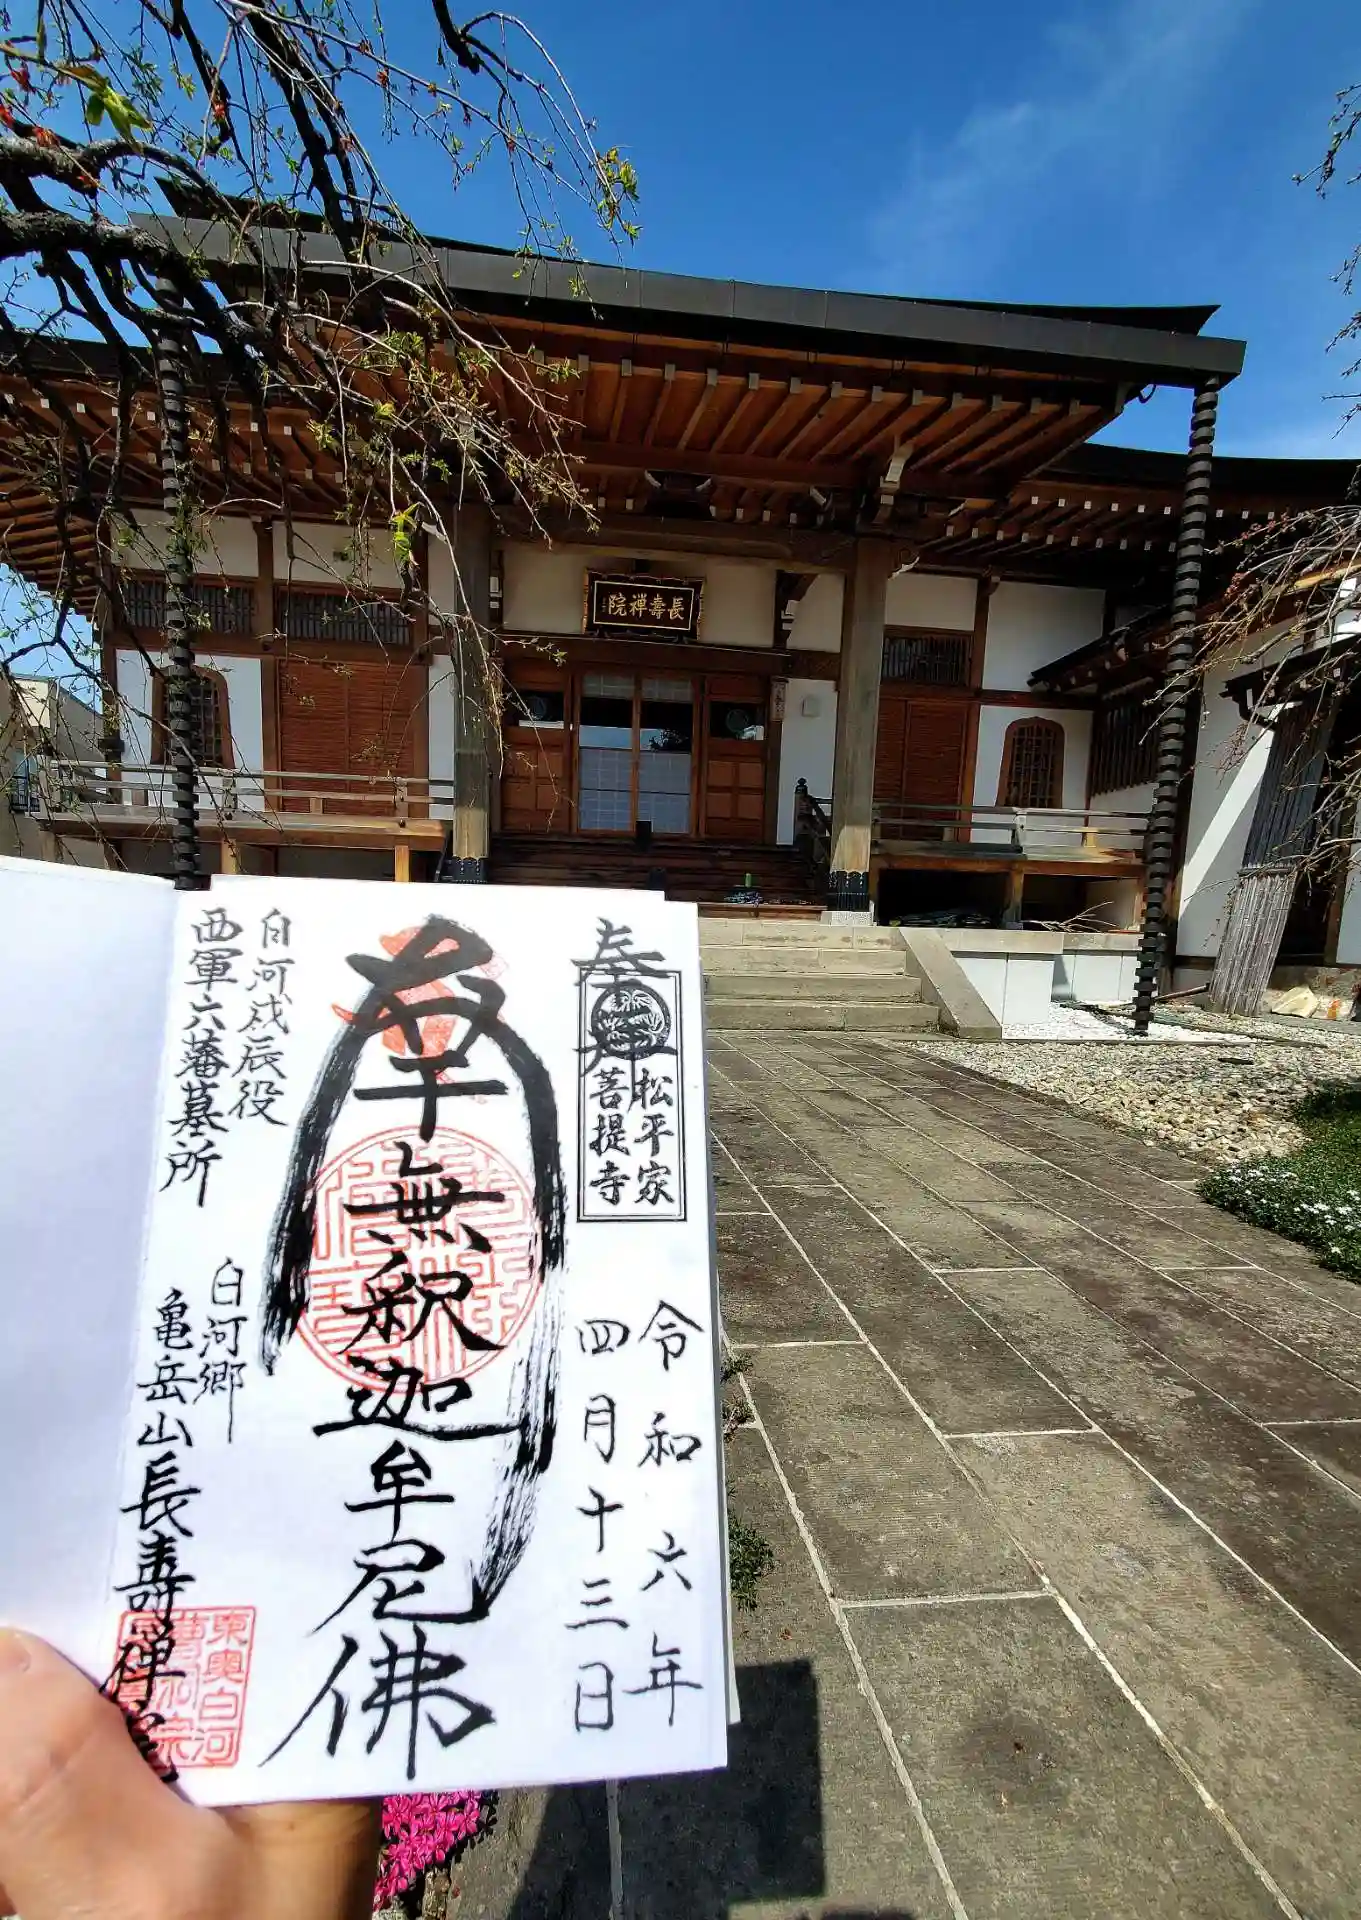 院禅壽長
奉拝
松平家
菩提寺
令和六年
四月十三日
南無釈迦牟尼佛
白河戊辰役
西軍六藩墓所
白河郷
亀岳山長壽禅院
東奥白河